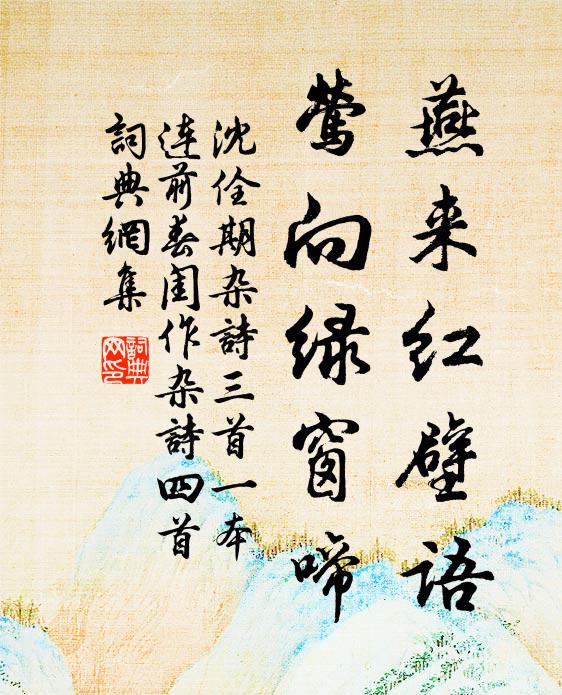 燕来红壁语
莺向绿窗啼
沈佺期杂詩三首一本
连前春闺作杂詩四首
詞典網集
詞典网印